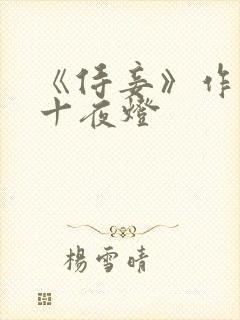 《侍妾》作
十夜燈
楊雪晴